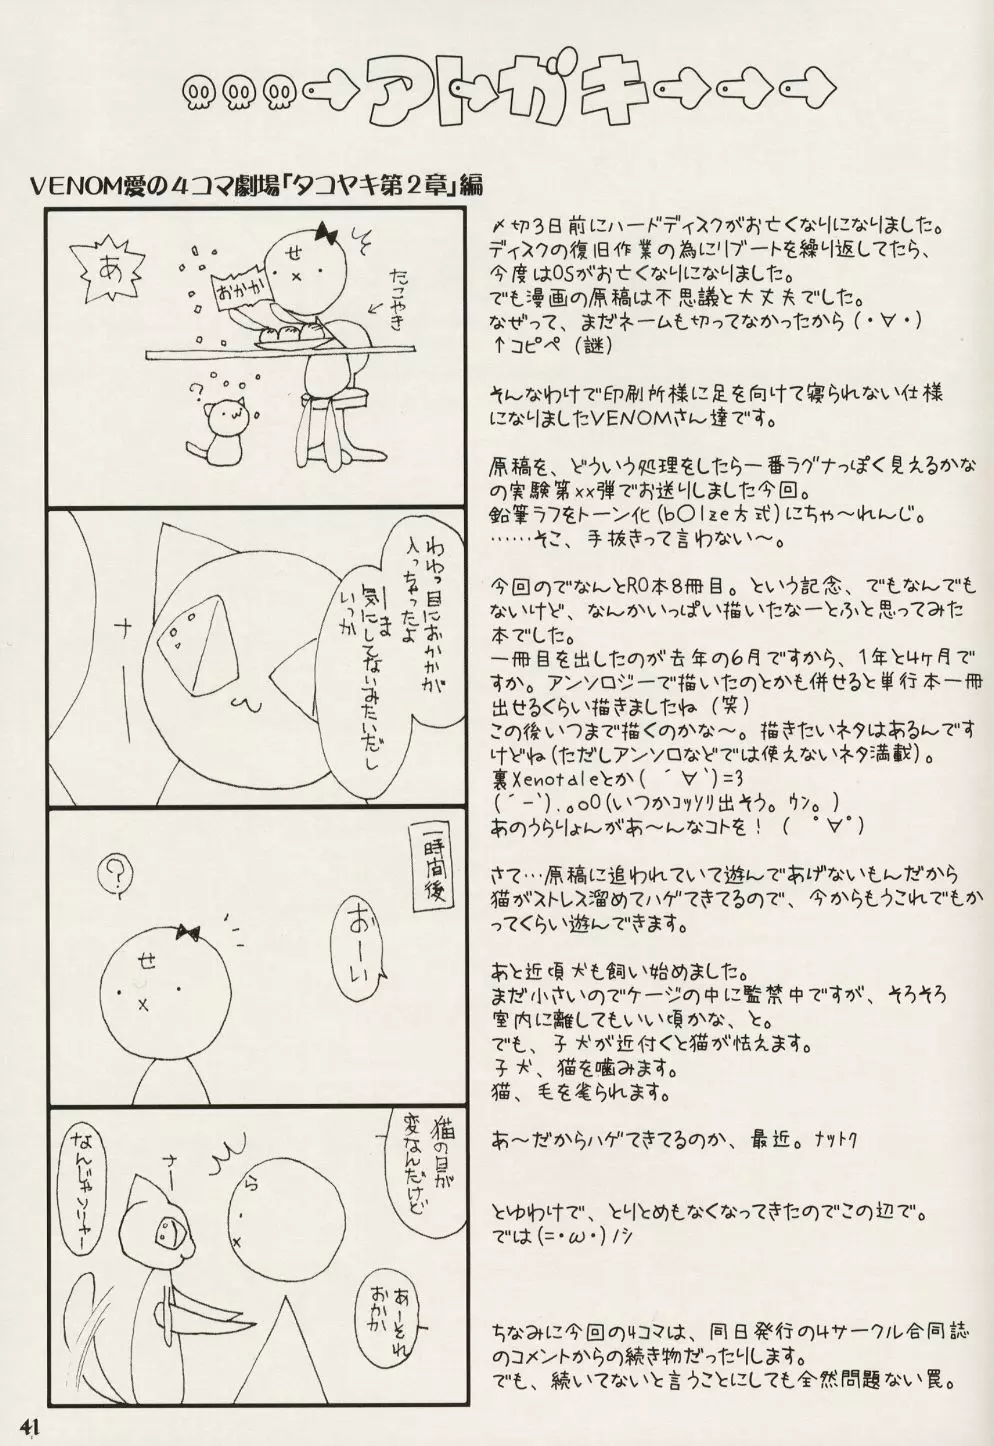 アトガキ
VENOM愛の4コマ劇場「タコヤキ第2章」編
あ
せ
おかか
たこやき
?
わわっ目におかかが
入っちゃったよ
ーま
気にしてないみたいだし
いっか
ナ
ー
一時間後
おーい
?
せ
猫の目が
変なんだけど
ら
ナー
なんじゃソリャー
あーそれ
おかか
〆切3日前にハードディスクがお亡くなりになりました。
ディスクの復旧作業の為にリブートを繰り返してたら、
今度はOSがお亡くなりになりました。
でも漫画の原稿は不思議と大丈夫でした。
なぜって、まだネームも切ってなかったから(・∀・)
↑コピペ(謎)
そんなわけで印刷所様に足を向けて寝られない仕様
になりましたVENOMさん達です。
原稿を、どういう処理をしたら一番ラグナっぽく見えるかな
の実験第xx弾でお送りしました今回。
鉛筆ラフをトーン化(b○lze方式)にちゃ〜れんじ。
……そこ、手抜きって言わない〜。
今回のでなんとRO本8冊目。という記念、でもなんでも
ないけど、なんかいっぱい描いたなーとふと思ってみた
本でした。
一冊目を出したのが去年の6月ですから、1年と4ヶ月で
すか。アンソロジーで描いたのとかも併せると単行本一冊
出せるくらい描きましたね(笑)
この後いつまで描くのかな〜。描きたいネタはあるんです
けどね(ただしアンソロなどでは使えないネタ満載)。
裏Xenotaleとか( ´∀`)=3
(´-`).。oO(いつかコッソリ出そう。ウン。)
あのうらりょんがあ〜んなコトを！( ゚∀゚)
さて…原稿に追われていて遊んであげないもんだから
猫がストレス溜めてハゲてきてるので、今からもうこれでもか
ってくらい遊んできます。
あと近頃犬も飼い始めました。
まだ小さいのでケージの中に監禁中ですが、そろそろ
室内に離してもいい頃かな、と。
でも、子犬が近付くと猫が怯えます。
子犬、猫を噛みます。
猫、毛を毟られます。
あ〜だからハゲてきてるのか、最近。ナットク
とゆわけで、とりとめもなくなってきたのでこの辺で。
では(=・ω・)ノシ
ちなみに今回の4コマは、同日発行の4サークル合同誌
のコメントからの続き物だったりします。
でも、続いてないと言うことにしても全然問題ない罠。
41